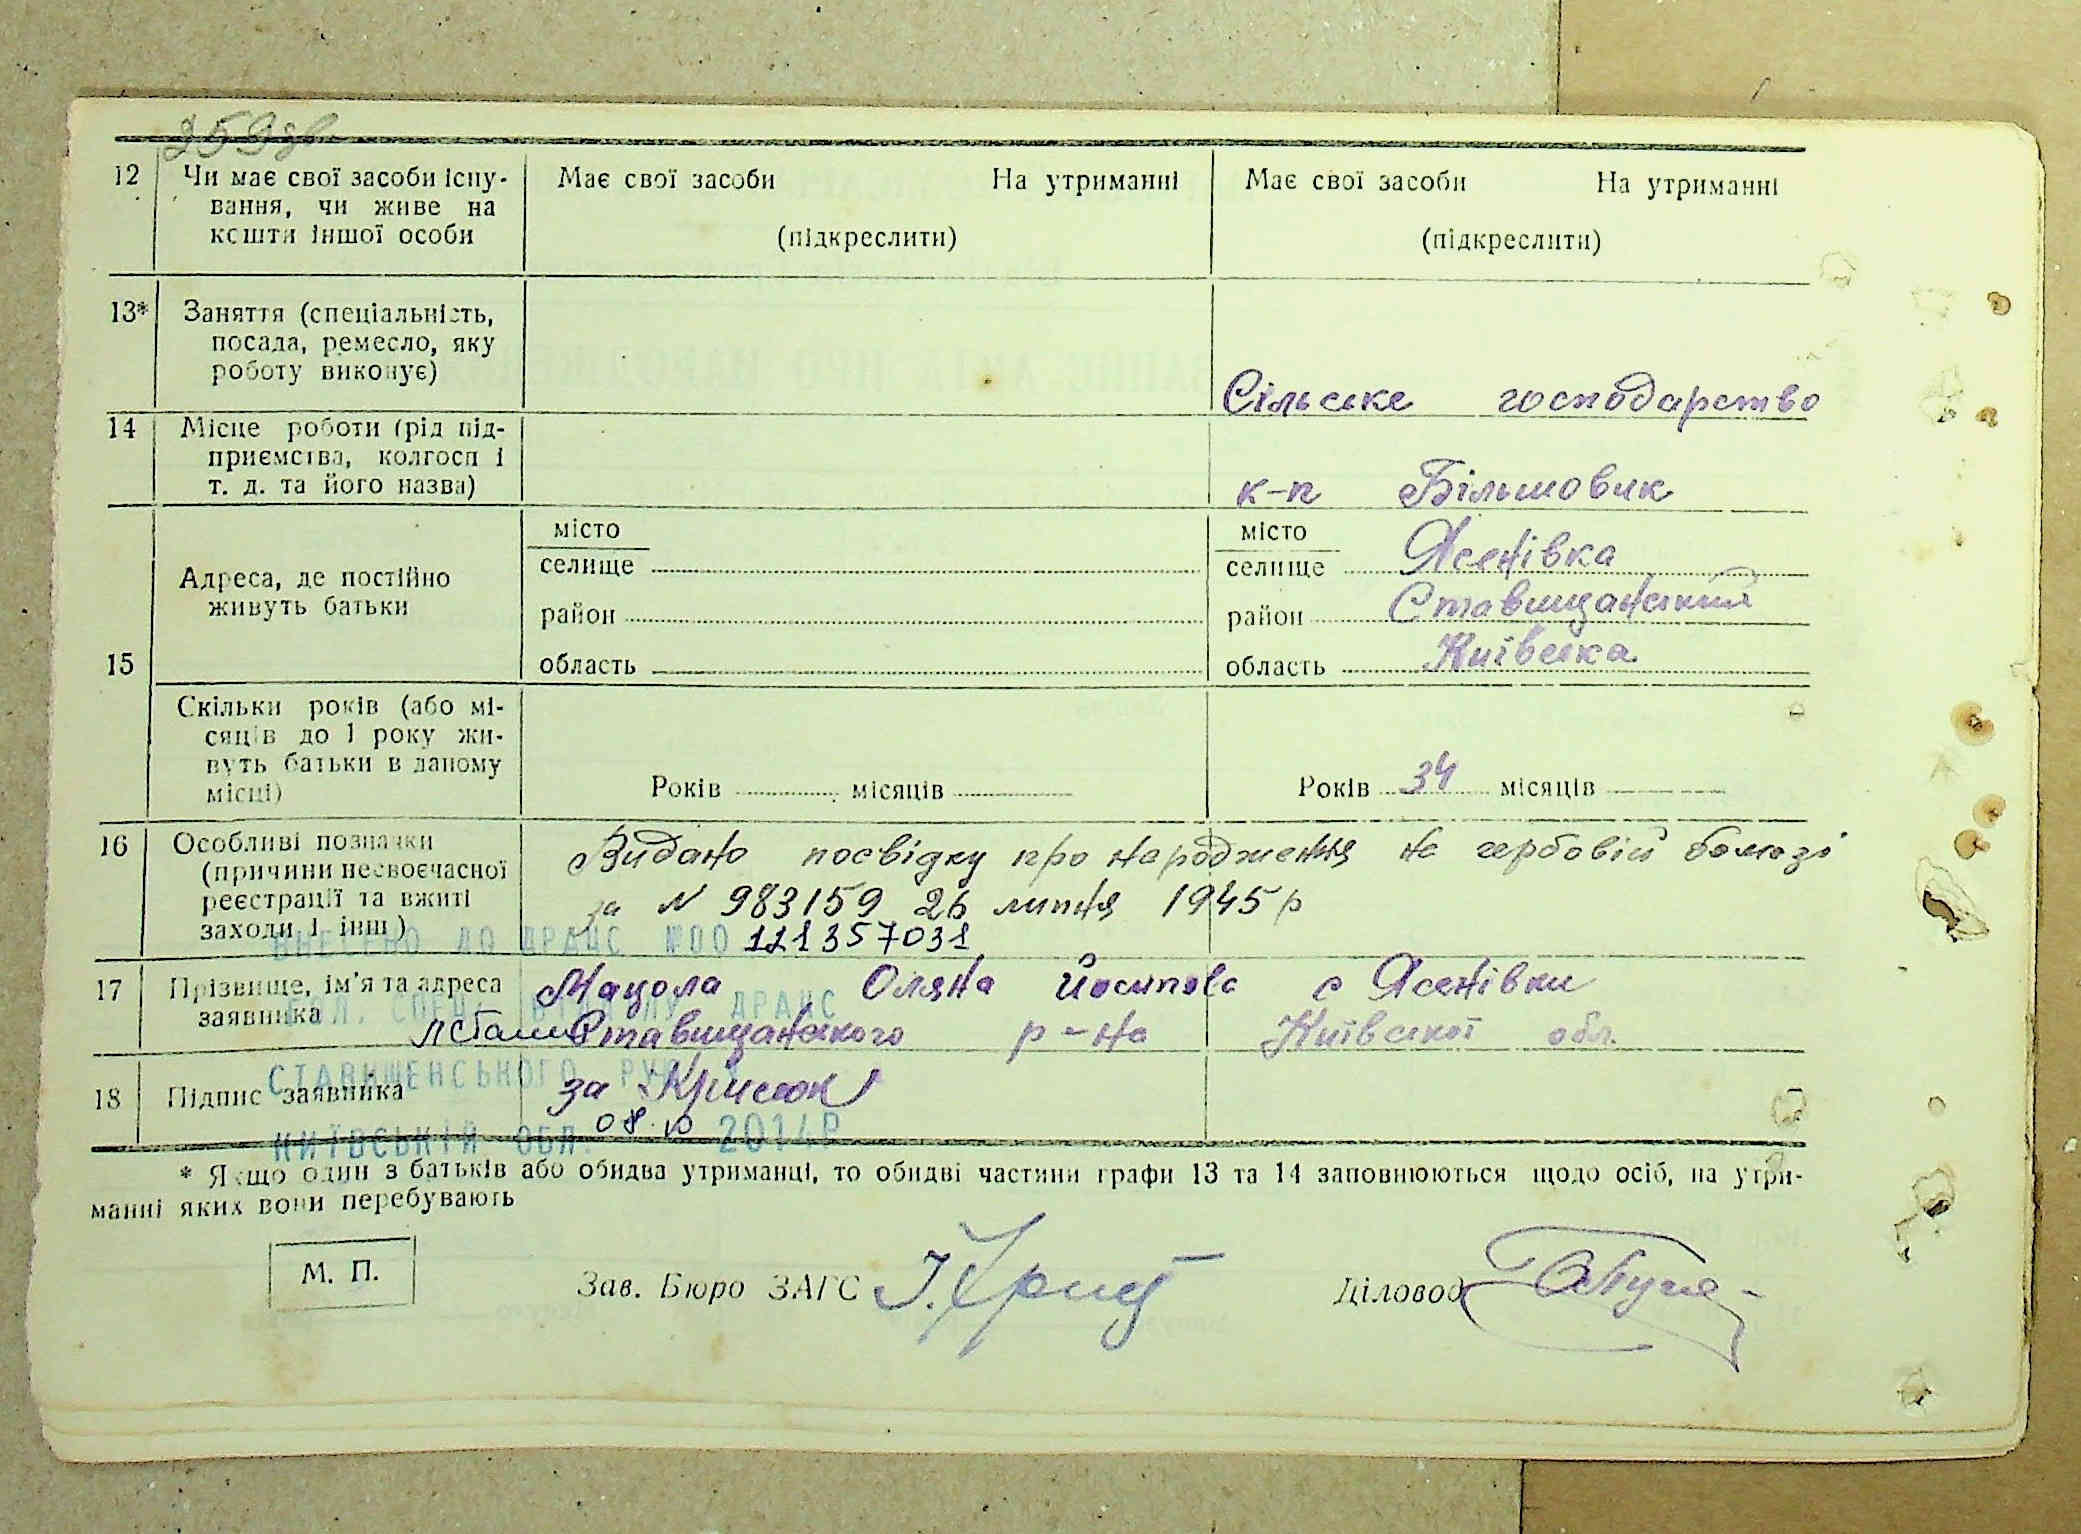 259зв
12 Чи має свої засоби існу- Має свої засоби На утриманні Має свої засоби На утриманні
вання, чи живе на
кошти іншої особи (підкреслити) (підкреслити)
13* Заняття (спеціальність,
посада, ремесло, яку
роботу виконує) Сільське господарство
14 Місце роботи (рід під-
приємства, колгосп і
т. д. та його назва) к-п Більшовик
місто місто
селище селище Ясенівка
Адреса, де постійно
живуть батьки
район район Ставищанський
15 область область Київська
Скільки років (або мі-
сяців до 1 року жи-
вуть батьки в даному
місці) Років місяців Років 34 місяців
16 Особливі позначки Видано посвідку про народження на гербовій бомазі
(причини несвоєчасної
реєстрації та вжиті за N 983159 26 липня 1945 р
заходи і інш)
ВНЕСЕНО ДО ДРАЦС №00 121357031
17 Прізвище, ім'я та адреса Мацола Оляна Йосипова с Ясенівки
заявника
СПЕЦ. ВІДДІЛУ ДРАЦС
Ставищанського р-на Київської обл.
СТАВИЩЕНСЬКОГО РУЮ
18 Підпис заявника за
08.10 2014Р
КИЇВСЬКІЙ ОБЛ.
* Якщо один з батьків або обидва утриманці, то обидві частини графи 13 та 14 заповнюються щодо осіб, на утри-
манні яких вони перебувають
М. П. Зав. Бюро ЗАГС Діловод